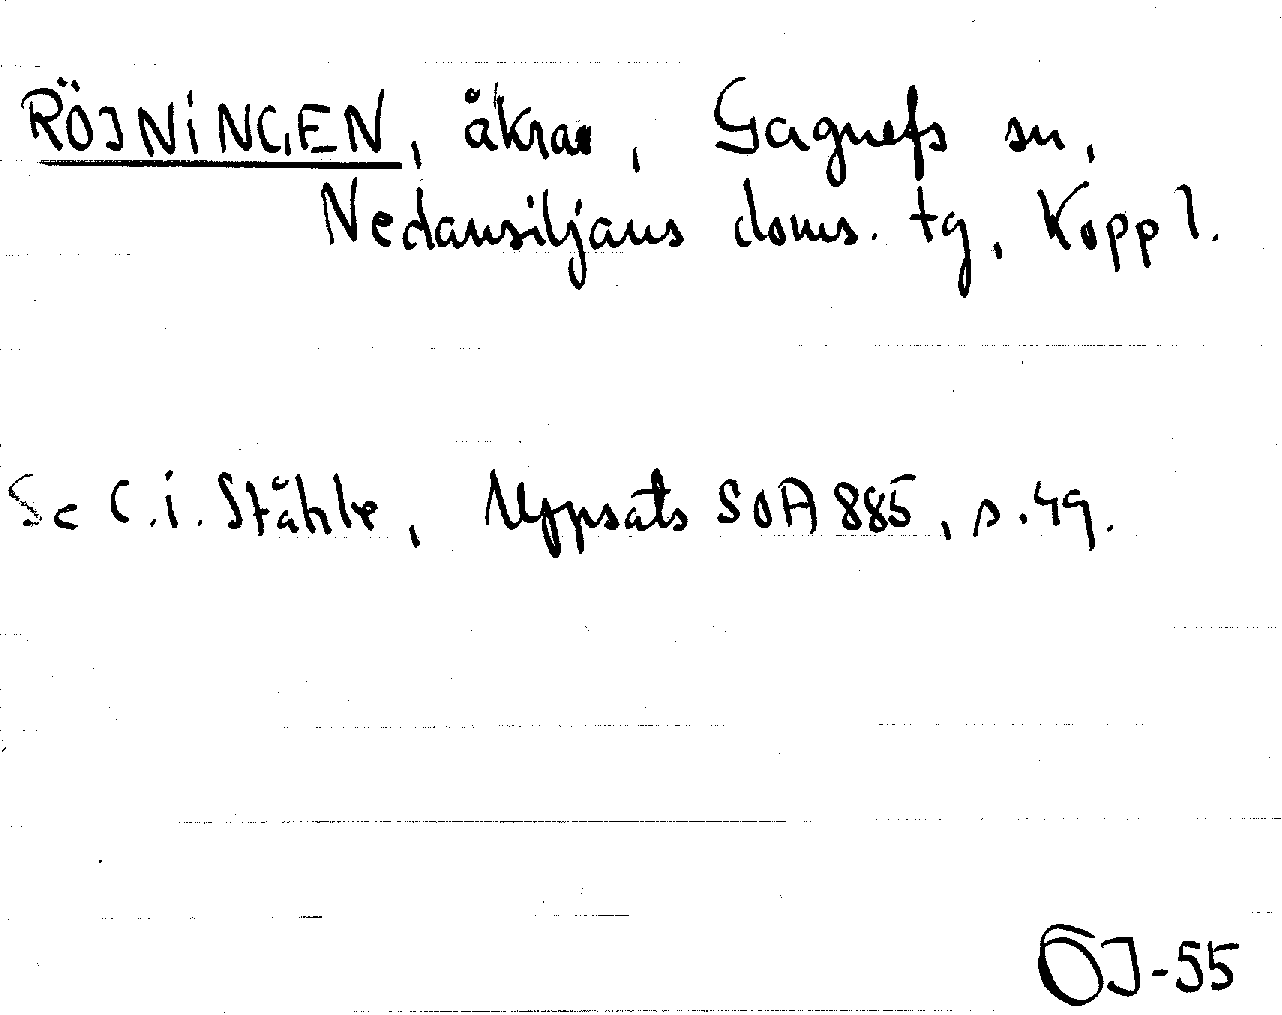 RÖJNINGEN, åkrar, Gagnefs sn,
Nedansiljans doms. tg, Kopp l.
Se C.I. Ståhle, Uppsats SOA 885, s. 49.
ÖJ-55